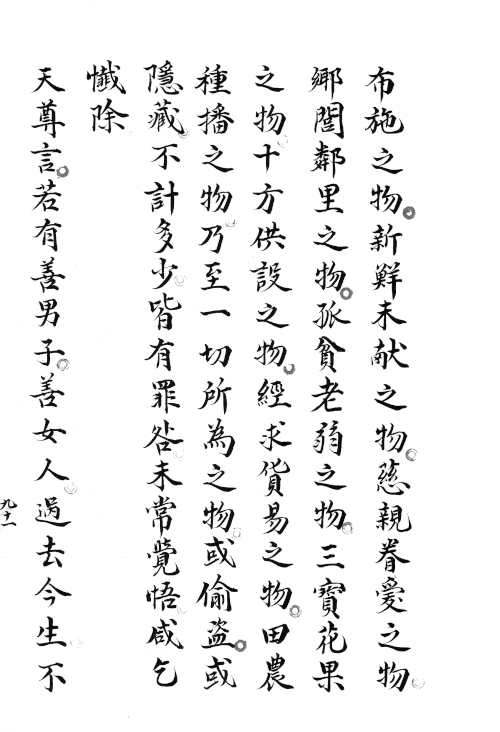 布施之物。新鮮未献之物。慈親眷愛之物。
鄉閭鄰里之物。孤貧老弱之物。三寶花果
之物。十方供設之物。經求貨易之物。田農
種播之物。乃至一切所為之物。或偷盜。或
隱藏。不計多少。皆有罪咎。未常覺悟。咸乞
懺除。
天尊言。若有善男子。善女人。過去今生。不
九十一